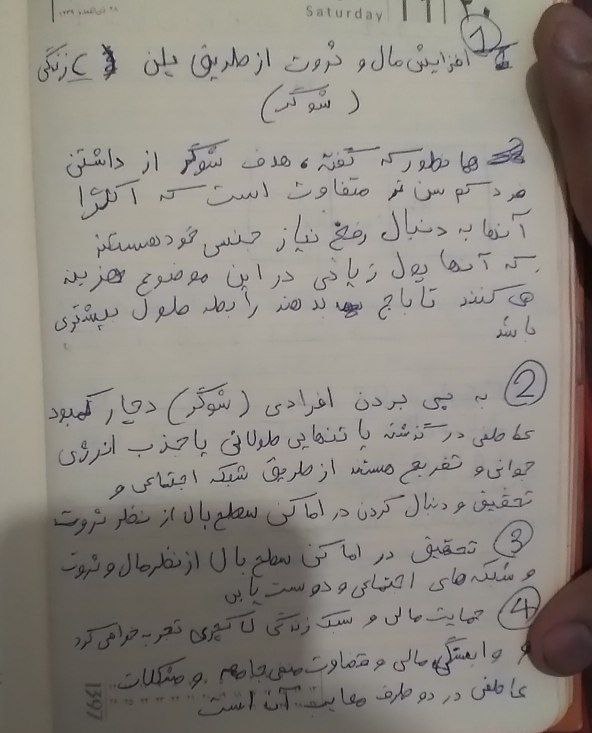 Saturday
۱۱ ۲۰
① افزایش مال و ثروت از طریق پلن زندگی
(شوگر)
همانطور که گفته، هدف شوگر از داشتن
مرد کم سن تر متفاوت است که اکثرا
آنها به دنبال رفع نیاز جنسی خود هستند
که آنها پول زیادی در این موضوع هزینه
می کنند تا باج بدهند رابطه طول بیشتری
باشد
② به پی بردن افرادی (شوگر) دچار کمبود
عاطفی در گذشته یا تنهایی طولانی یا جذب انرژی
جوانی و تفریح هستند از طریق شبکه اجتماعی و
تحقیق و دنبال کردن در اماکن سطح بالا از نظر ثروت
③ تحقیق در اماکن سطح بالا از نظر مال و ثروت
و شبکه های اجتماعی و دوست یابی
④ حمایت مالی و سبک زندگی لاکچری تجربه خواهی کرد
و وابستگی مالی و قضاوت منفی جامعه و مشکلات
عاطفی در دو طرف معایب آن است
1397